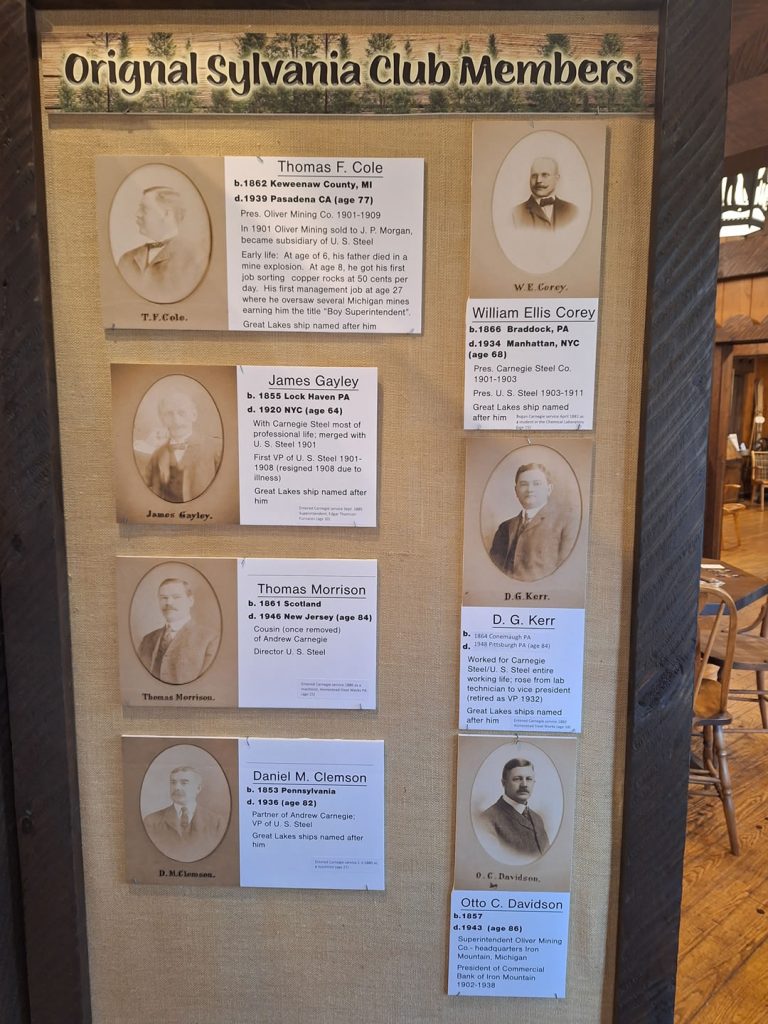 Orignal Sylvania Club Members
T.F.Cole.
Thomas F. Cole
b.1862 Keweenaw County, MI
d.1939 Pasadena CA (age 77)
Pres. Oliver Mining Co. 1901-1909
In 1901 Oliver Mining sold to J. P. Morgan,
became subsidiary of U. S. Steel
Early life: At age of 6, his father died in a
mine explosion. At age 8, he got his first
job sorting copper rocks at 50 cents per
day. His first management job at age 27
where he oversaw several Michigan mines
earning him the title "Boy Superintendent".
Great Lakes ship named after him
James Gayley.
James Gayley
b. 1855 Lock Haven PA
d. 1920 NYC (age 64)
With Carnegie Steel most of
professional life; merged with
U. S. Steel 1901
First VP of U. S. Steel 1901-
1908 (resigned 1908 due to
illness)
Great Lakes ship named after
him
Entered Carnegie service Sept. 1885
Superintendent, Edgar Thomson
Furnaces
Thomas Morrison.
Thomas Morrison
b. 1861 Scotland
d. 1946 New Jersey (age 84)
Cousin (once removed)
of Andrew Carnegie
Director U. S. Steel
Entered Carnegie service 1886 as a
machinist, Homestead Steel Works PA
D.M.Clemson.
Daniel M. Clemson
b. 1853 Pennsylvania
d. 1936 (age 82)
Partner of Andrew Carnegie;
VP of U. S. Steel
Great Lakes ships named after
him
Entered Carnegie service
W.E.Corey.
William Ellis Corey
b.1866 Braddock, PA
d.1934 Manhattan, NYC
(age 68)
Pres. Carnegie Steel Co.
1901-1903
Pres. U. S. Steel 1903-1911
Great Lakes ship named
after him
Began Carnegie service April 1881 as
a student in the Chemical Laboratory
D.G.Kerr.
D. G. Kerr
b. 1864 Conemaugh PA
d. 1948 Pittsburgh PA (age 84)
Worked for Carnegie
Steel/U. S. Steel entire
working life; rose from lab
technician to vice president
(retired as VP 1932)
Great Lakes ships named
after him
Entered Carnegie service
Homestead Steel Works
O.C.Davidson.
Otto C. Davidson
b.1857
d.1943 (age 86)
Superintendent Oliver Mining
Co.- headquarters Iron
Mountain, Michigan
President of Commercial
Bank of Iron Mountain
1902-1938